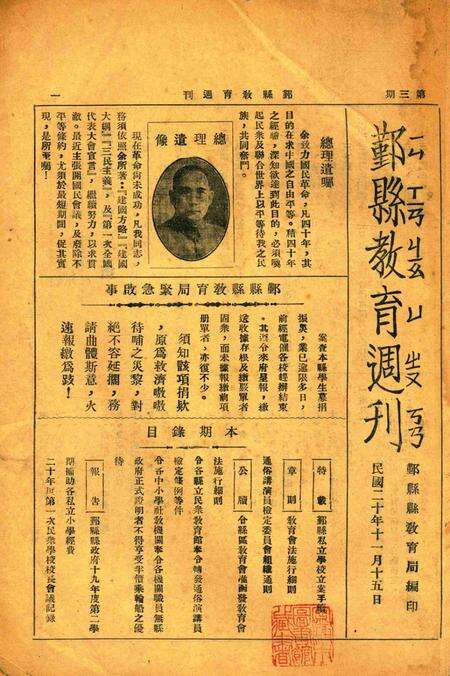 第三期
鄞縣教育週刊
一
鄞縣教育週刊
鄞縣縣教育局編印
民國二十年十一月十五日
總理遺囑
余致力國民革命，凡四十年，其
目的在求中國之自由平等。積四十年
之經驗，深知欲達到此目的，必須喚
起民衆及聯合世界上以平等待我之民
族，共同奮鬥。
總理遺像
現在革命尚未成功，凡我同志，
務須依照余所著：『建國方略』『建國
大綱』『三民主義』，及『第一次全國
代表大會宣言』，繼續努力，以求貫
澈。最近主張開國民會議，及廢除不
平等條約，尤須於最短期間，促其實
現，是所至囑！
鄞縣縣教育局緊急啟事
案查本縣學生募捐
振災，業已逾限多日，
前經電催各校趕辦結束
須知該項捐欵
，原爲救濟嗷嗷
待哺之災黎，對
絕不容延擱，務
請曲體斯意，火
速報繳爲荻！
本期錄目
特載
鄞縣私立學校立案手續
章則
教育會法施行細則
通俗講演員檢定委員會組織通則
公牘
令縣區教育會奉頒發教育會
法施行細則
令各縣立民衆教育館奉令轉發通俗演講員
檢定條例等件
令各中小學社教機關奉令各機關職員無縣
政府正式證明者不得享受半價乘輪船之優
待
報告
鄞縣縣政府十九年度第二學
期補助各私立小學經費
二十年度第一次民衆學校校長會議記錄